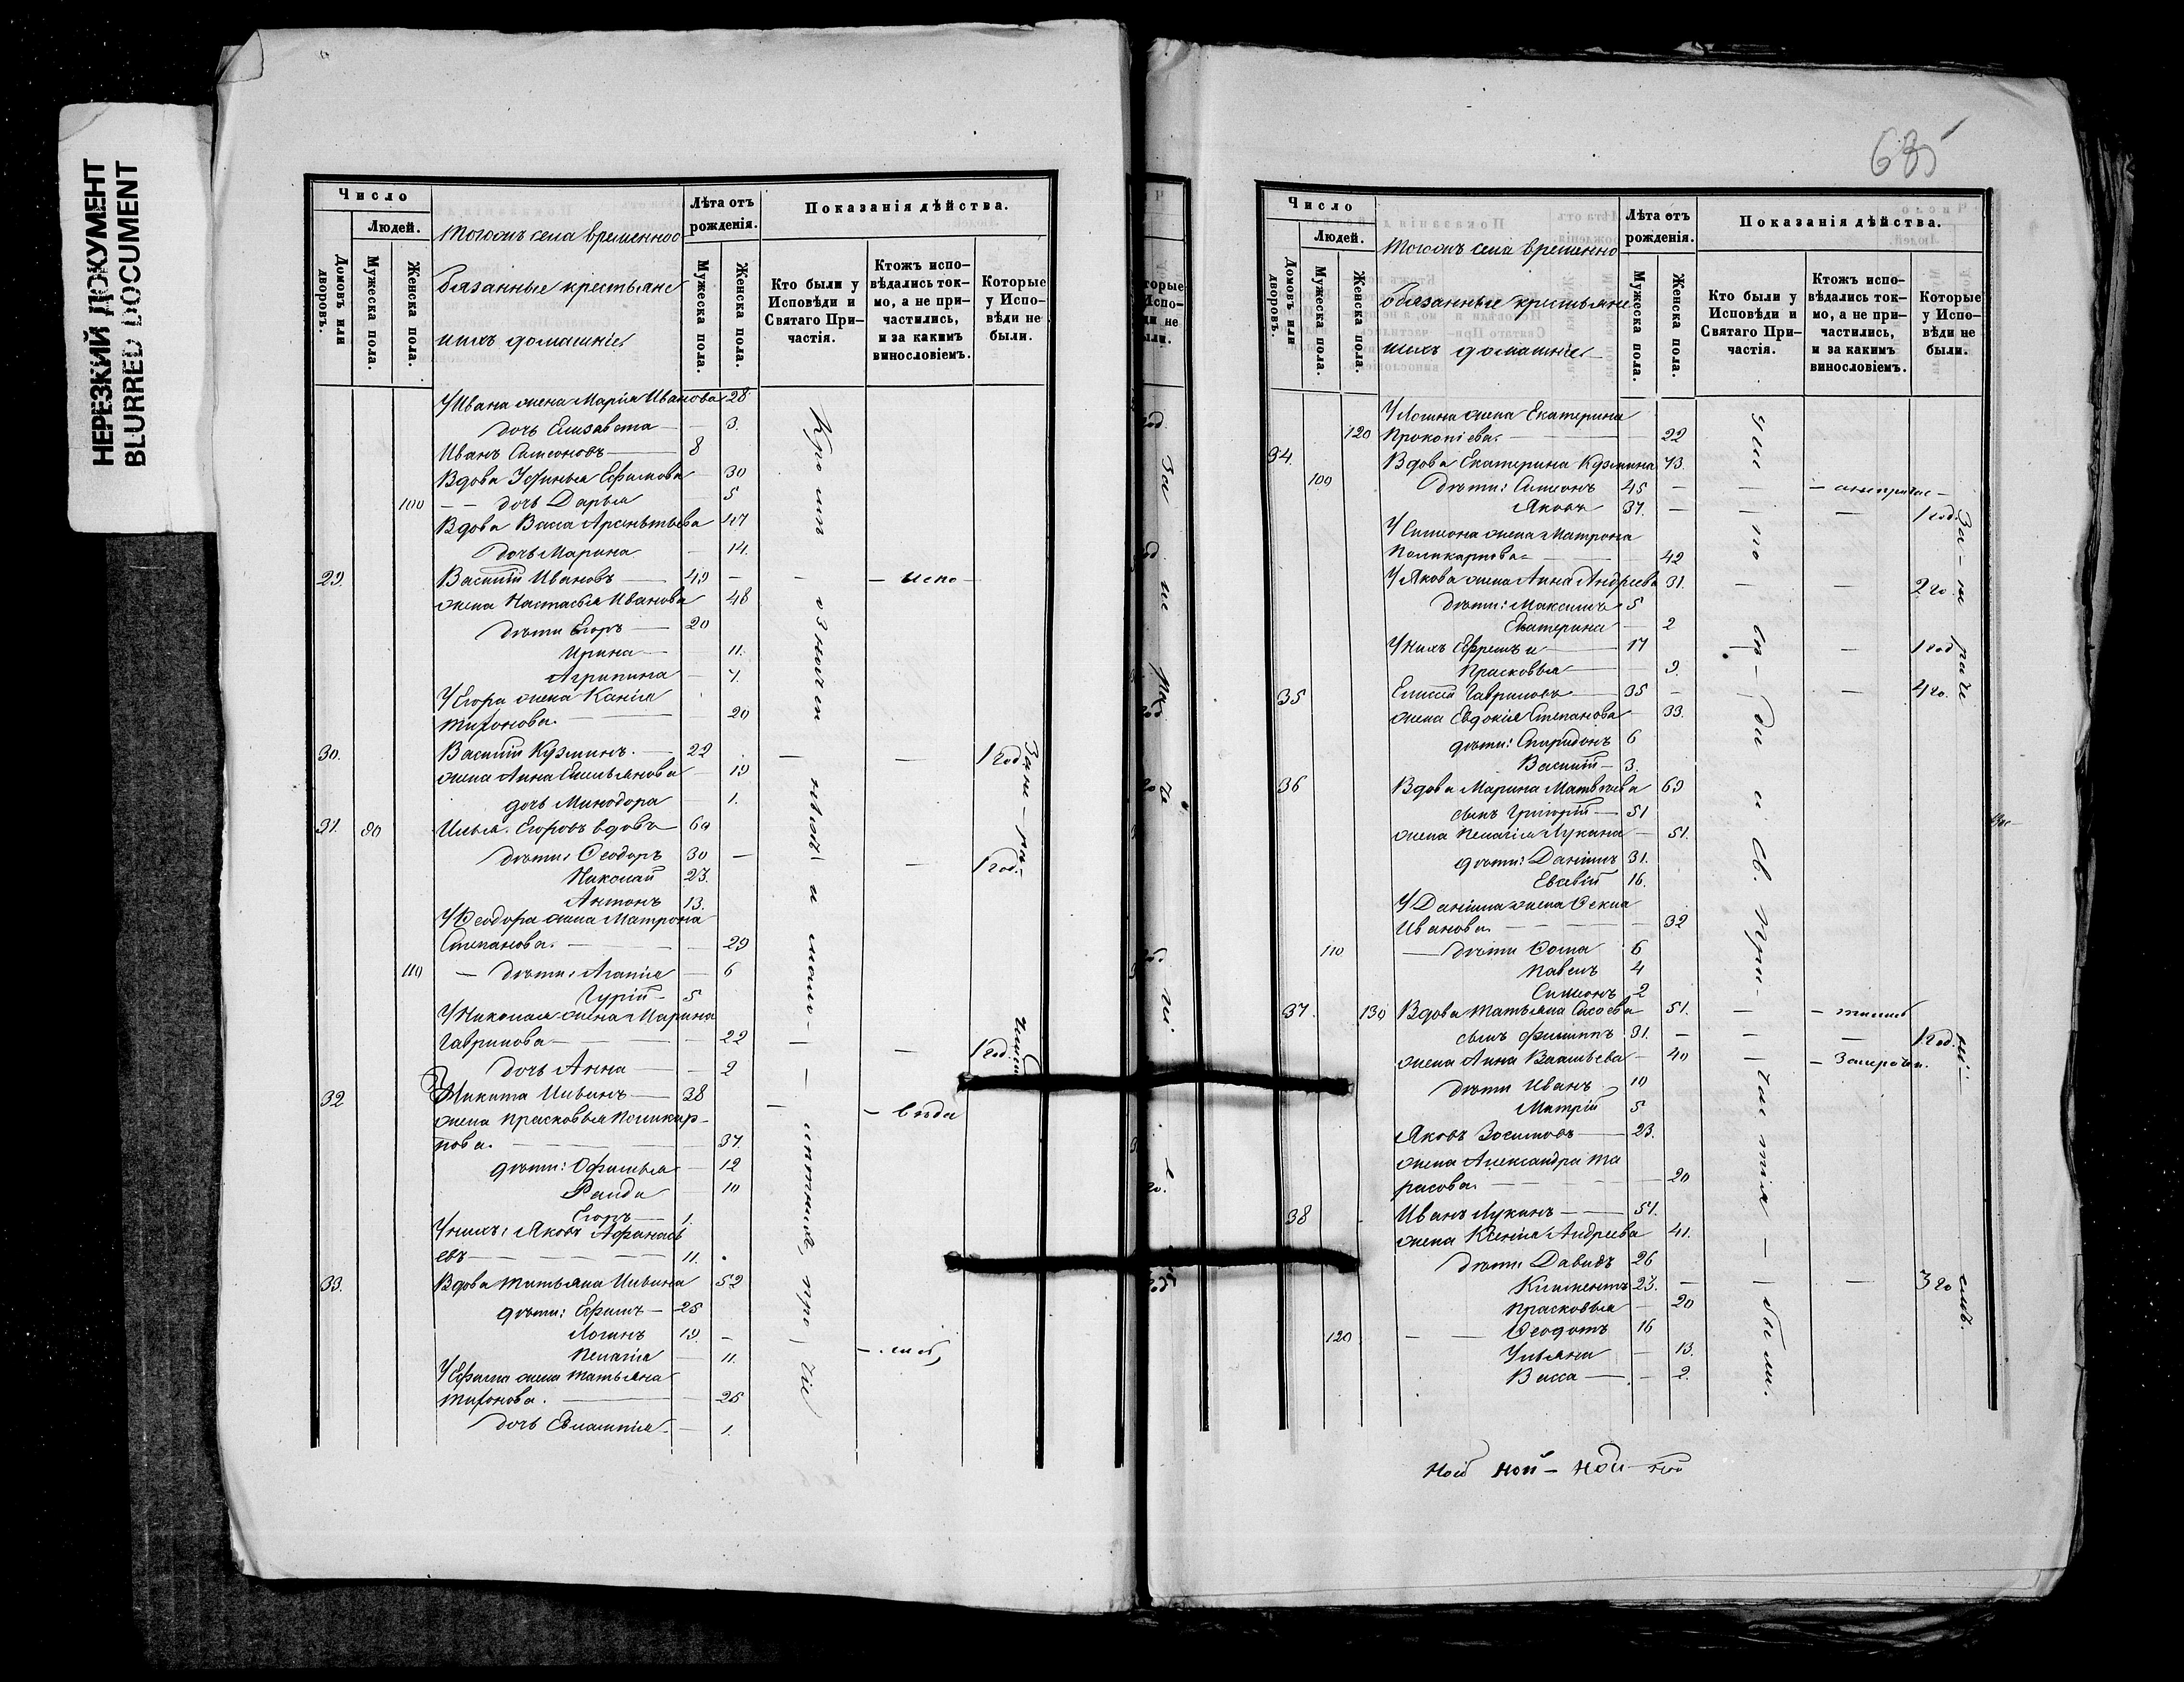 НЕРЕЗКИЙ ДОКУМЕНТ
BLURRED DOCUMENT
Число
Людей.
Домовъ или дворовъ.
Мужеска пола.
Женска пола.
Тогожъ села временно
обязанные крестьяне
ихъ домашніе
Лѣта отъ рожденія.
Мужеска пола.
Женска пола.
Показанія дѣйства.
Кто были у Исповѣди и Святаго При-частія.
Ктожъ испо-вѣдались ток-мо, а не при-частились, и за какимъ винословіемъ.
Которые у Испо-вѣди не были.
У Ивана жена Марія Иванова 28
дочь Елизавета — — 3.
Иванъ Симеоновъ — 8
Вдова Ефимова 30
100 — — дочь Дарья 5
Вдова Васса Арсентьева 47
дочь Марина — 14.
29. Василій Ивановъ — 49 — — — испо —
жена Настасья Иванова 48
дѣти Егоръ — 20
Ирина — 11.
Агрипина — 7.
У Егора жена
Тихонова. — — 20
30. Василій Кузминъ. — 22 — — 1 год.
жена Анна Емельянова — 19
дочь Минодора — 1.
31. 90 Илья Егоровъ вдовъ 60
дѣти: Ѳеодоръ 30 — — 1 год.
Николай 23.
Антонъ 13.
У Ѳеодора жена Матрона
Степанова. — — 29
110 — дѣти: Агапія — 6
Гурій — 5
У Николая жена Марина
Гаврилова — — — 22 — — 1 год.
дочь Анна — 2
32 Никита Ильинъ — 38 — — вѣда
жена Прасковья Поликар-
пова. — 37.
дѣти: Офимья — 12
10
Егоръ — 1.
У нихъ: Яковъ Афанась
евъ — — — 11.
33. Вдова Татьяна Ильина 52
дѣти: Ефимъ — 25
Логинъ 19. —
Пелагія — 11.
У Ефима жена Татьяна
Тихонова. — 25
дочь — 1.
685
Число
Людей.
Домовъ или дворовъ.
Мужеска пола.
Женска пола.
Тогожъ села временно
обязанные крестьяне
ихъ домашніе
Лѣта отъ рожденія.
Мужеска пола.
Женска пола.
Показанія дѣйства.
Кто были у Исповѣди и Святаго При-частія.
Ктожъ испо-вѣдались ток-мо, а не при-частились, и за какимъ винословіемъ.
Которые у Испо-вѣди не были.
У Логина жена Екатерина
120 Прокопіева. — — 22
34. Вдова Екатерина Кузмина 73.
100 дѣти: Симеонъ 45 — —
Яковъ 37. — — — 1 год.
У Симеона жена Матрона
Поликарпова — 42
У Якова жена Анна Андреева 31. — — 2 го
дѣти: Максимъ 5
Екатерина — 2
У нихъ Ефремъ и — 17 — — 1 год
Прасковья — 9.
35 Елисей Гавриловъ — 35 — — 4 го.
жена Евдокія Степанова — 33.
дѣти: Спиридонъ 6
Василій — 3.
36 Вдова Марина Матвѣева 69
сынъ Григорій — 51
жена Пелагія Лукина — 51.
дѣти: Даніилъ 31.
Евсевій 16.
У Даніила жена Ѳекла
Иванова. — — 32
110 — дѣти Ѳома 6
Павелъ 4
Симеонъ 2
37. 130 Вдова Татьяна Сысоева 51. —
сынъ Филиппъ 31. — — — 1 год.
жена Анна Васильева — 40 —
дѣти Иванъ 10
Митрій 5
Яковъ Зосимовъ — 23.
жена Александра Та
расова. — — 20
38 Иванъ Лукинъ — — 51.
жена Ксенія Андреева 41.
дѣти Давидъ 26
Климентъ 23. — — — 3 го
Прасковья — 20
120 — — Ѳеодотъ 16
Ульяна — 13.
Васса — — 2.
и св. При-
частія — были.